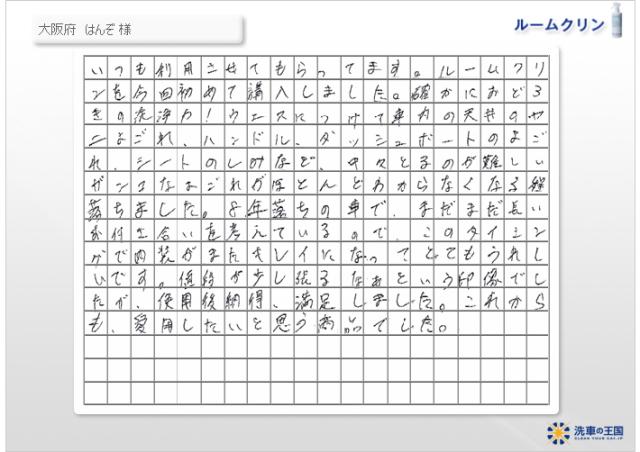 大阪府 はんぞ 様
ルームクリン
いつも利用させてもらってます。ルームクリ
ンを今回初めて購入しました。確かにおどろ
きの洗浄力！ウエスにつけて車内の天井のヤ
ニよごれ、ハンドル、ダッシュボートのよご
れ、シートのしみなど、中々とるのが難しい
ガンコなよごれがほとんどわからなくなる程
落ちました。8年落ちの車で、まだまだ長い
お付き合いを考えているので、このタイミン
グで内装がまたキレイになってとてもうれし
いです。値段が少し張るなぁという印象でし
たが、使用後納得、満足しました。これから
も、愛用したいと思う商品でした。
洗車の王国
CLEAN YOUR CAR.JP